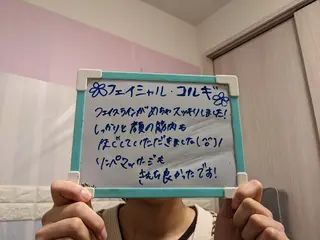 フェイシャル・コルギ
フェイスラインがめちゃスッキリしました!
しっかりと顔の筋肉も
ほぐしていただきました(^o^)!
リンパマッサージも
きもち良かったです!